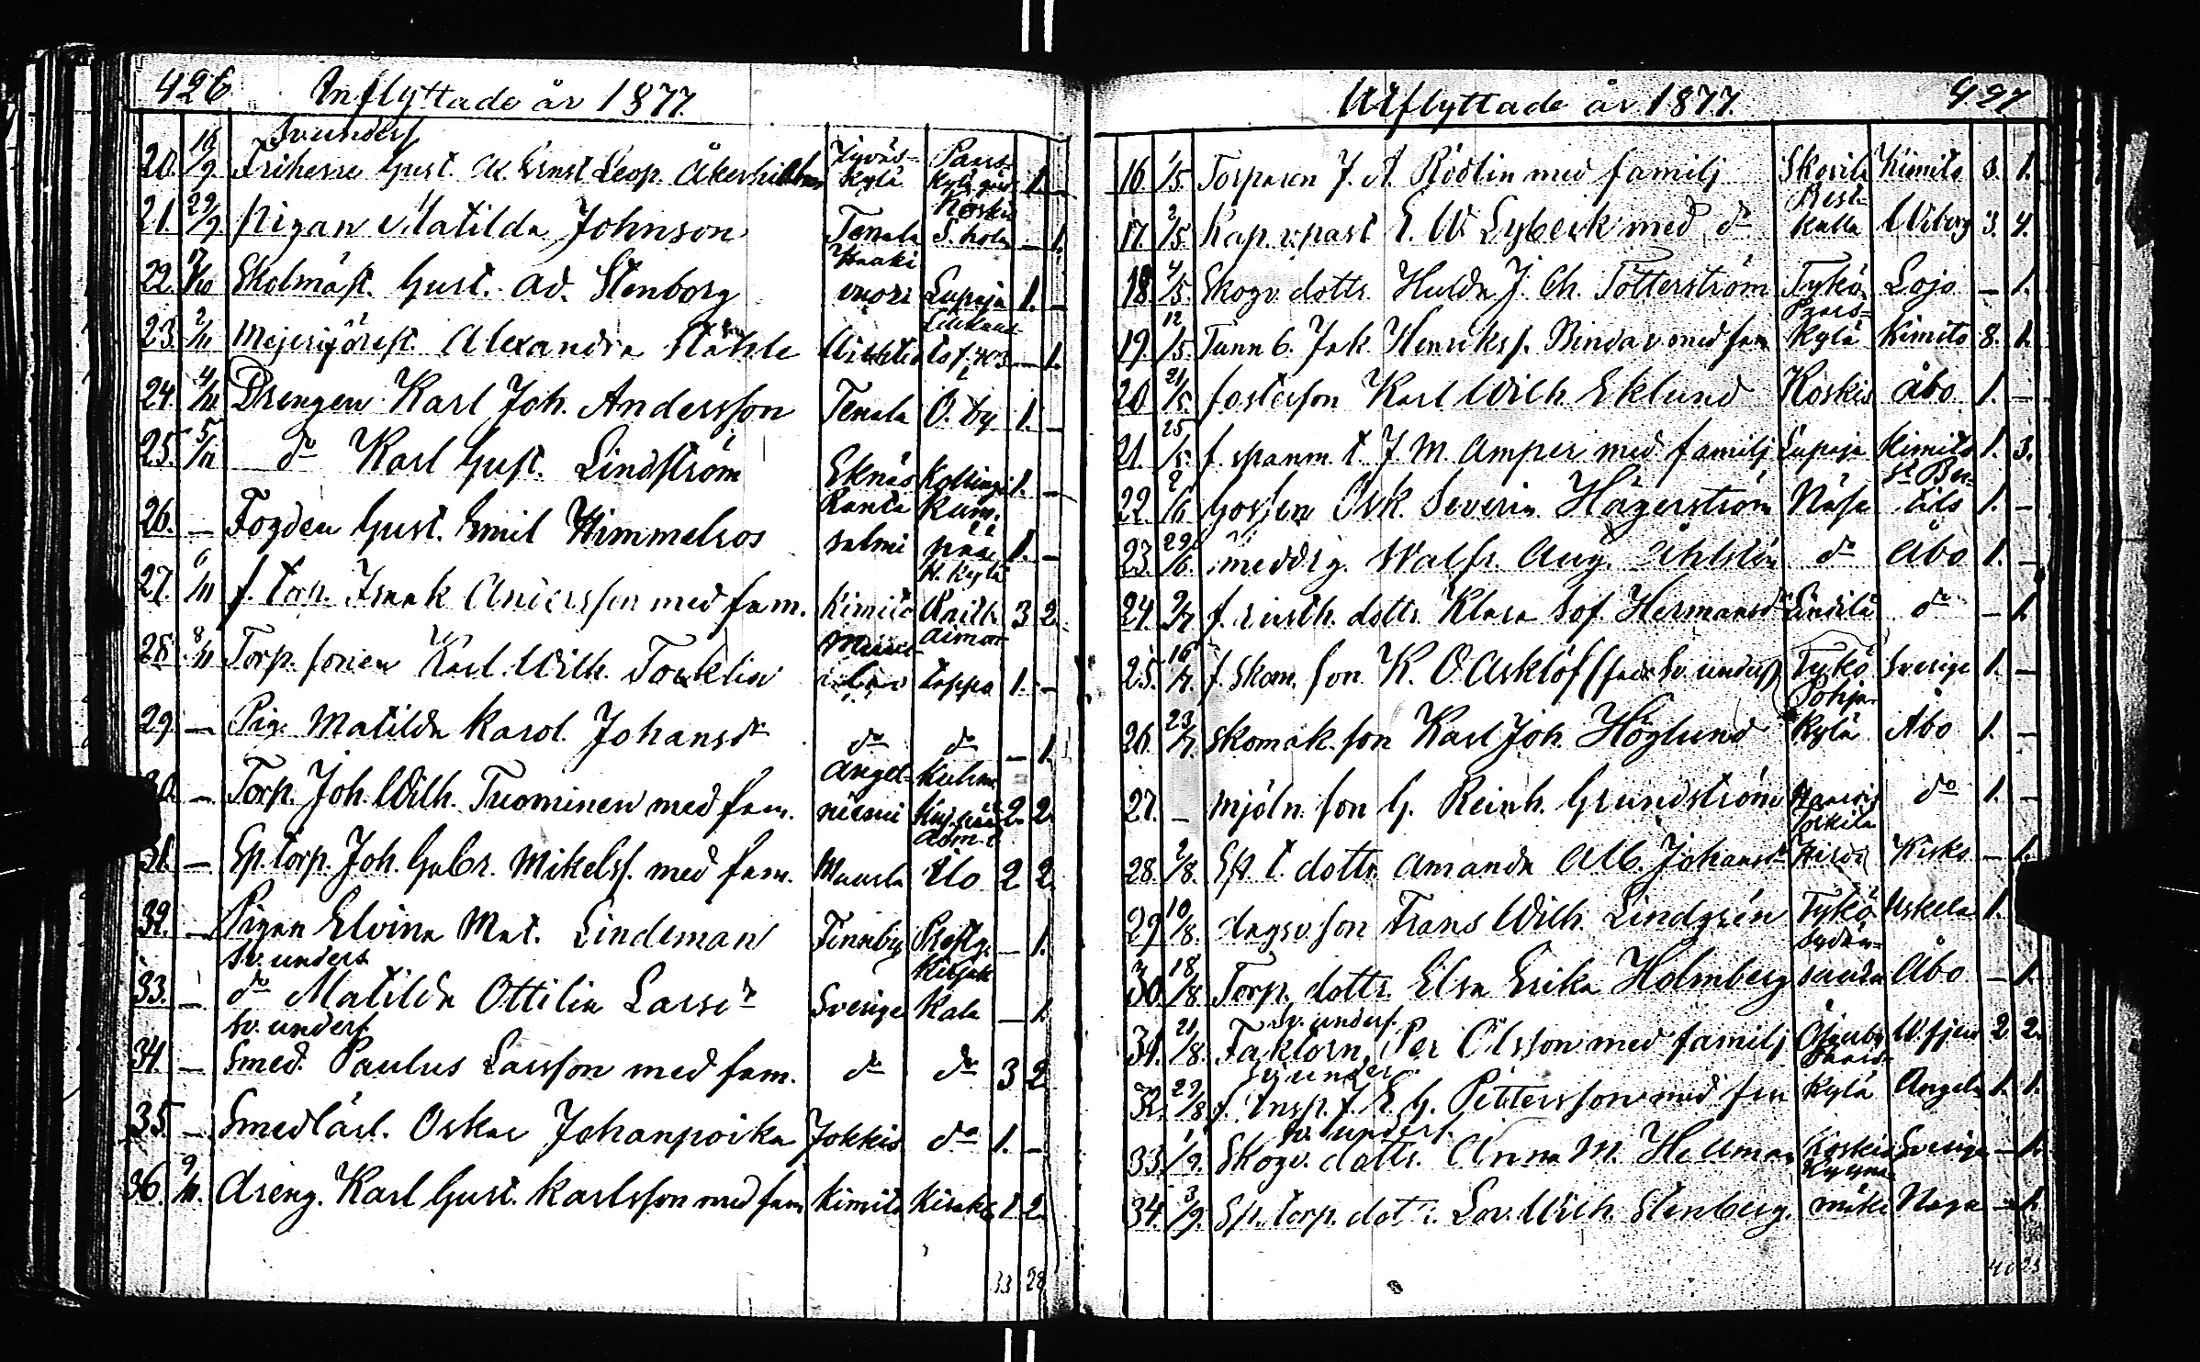 426 Inflyttade år 1877.
Sv. unders
20. 18/9 Friherre Gust. Ad. Ernst Leop. Åkerhielm Jyväs-kylä 1. —
21. 29/9 Pigan Matilda Johnson Tenala Koskis S. hola — 1.
22. 2/10 Skolmäst. Gust. Ad. Stenborg Lupaja 1. —
23. 2/11 Mejerigörest. Alexandra Ståhle — 1.
24. 4/11 Drengen Karl Joh. Andersson Tenala Ö. by 1. —
25. 5/11 do Karl Gust. Lindström Eknäs 1. —
26. — Fogden Gust. Emil Himmelros Ranta salmi 1. —
27. 6/11 f. torp. Isaak Andersson med fam. Kimito 3 2.
28. 8/11 Torp. sonen Karl Wilh. Torklin 1. —
29. — Pig. Matilda Karol. Johansdr do do — 1.
30. — Torp. Joh. Wilh. Tuominen med fam. Angel niemi 2. 2.
31. — Sp. torp. Joh. Gabr. Mikelss. med fam. Ilo 2 2.
32. — Pigan Elvina Mat. Lindeman Finnby — 1.
Sv. unders
33. — do Matilda Ottilia Larsdr Sverige Kirjak kala — 1.
Sv. unders
34. — Smed. Paulus Larsson med fam. do do 3 2.
35. — Smedlärl. Oskar Johanpoika Jokkis do 1. —
36. 9/11. dreng. Karl Gust. Karlsson med fam Kimito 1 2.
33 28
Utflyttade år 1877. 427
16 1/5. Torparen J. A. Rödlin med familj Kimito 3. 1.
17. 2/5. Kap. v. past E. W. Lybeck med do Wiborg 3. 4.
18. 4/5. Skogv. dottr. Hulda J. Ch. Tötterström Tykö Lojo — 1.
19. 12/5. Tunnb. Jak. Henrikss. Bindar med fam kylä Kimito 8. 1.
20 21/5. fosterson Karl Wilh Eklund Koskis Åbo 1. —
21. 25/5. f. spanm. t. J. M. Amper med familj Lupaja Kimito 1. 3.
22 2/6. Gossen Osk. Severin Hägerström Näse St Ber-tils 1. —
23. 29/6. smeddrg. Walfr. Aug. Ahlstén do Åbo 1. —
24. 9/7. f. rusth. dottr. Klara Sof. Hermansdr do — 1.
25. 16/7. f. skom. son K. O. Asklöf Tykö Sverige 1. —
26. 23/7. skomak. son Karl Joh. Höglund Pohjan kylä Åbo 1. —
27. — mjöln. son G. Reinh. Grundström do 1. —
28. 2/8. Sp. t. dottr. Amanda Alb. Johansdr Kisko — 1.
29. 10/8. dagsv. son Frans Wilh. Lindgrén Tykö Uskela 1.
30. 18/8. Torp. dottr. Elsa Erika Holmberg Åbo — 1.
Sv. unders.
31. 21/8. Faktorn Per Olsson med familj 2 2.
32. 29/8. f. Insp. f. E. G. Pettersson med fru kylä Angeln 1. 1.
Sv. unders.
33. 1/9. Skogv. dottr. Anna M. Hellman Koskis Sverige — 1.
34. 3/9. Sp. torp. dottr. Lov. Wilh. Stenberg. mäki — 1.